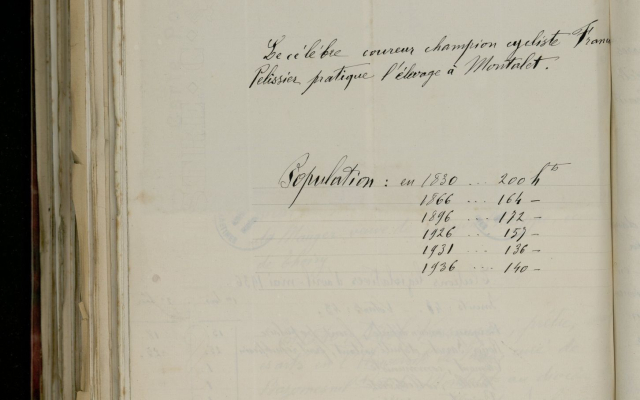 Le célèbre coureur champion cycliste Franc
Pelissier pratique l'élevage à Montalet.
Population : en 1830 ... 200 hts
1866 ... 164 -
1896 ... 172 -
1926 ... 157 -
1931 ... 136 -
1936 ... 140 -